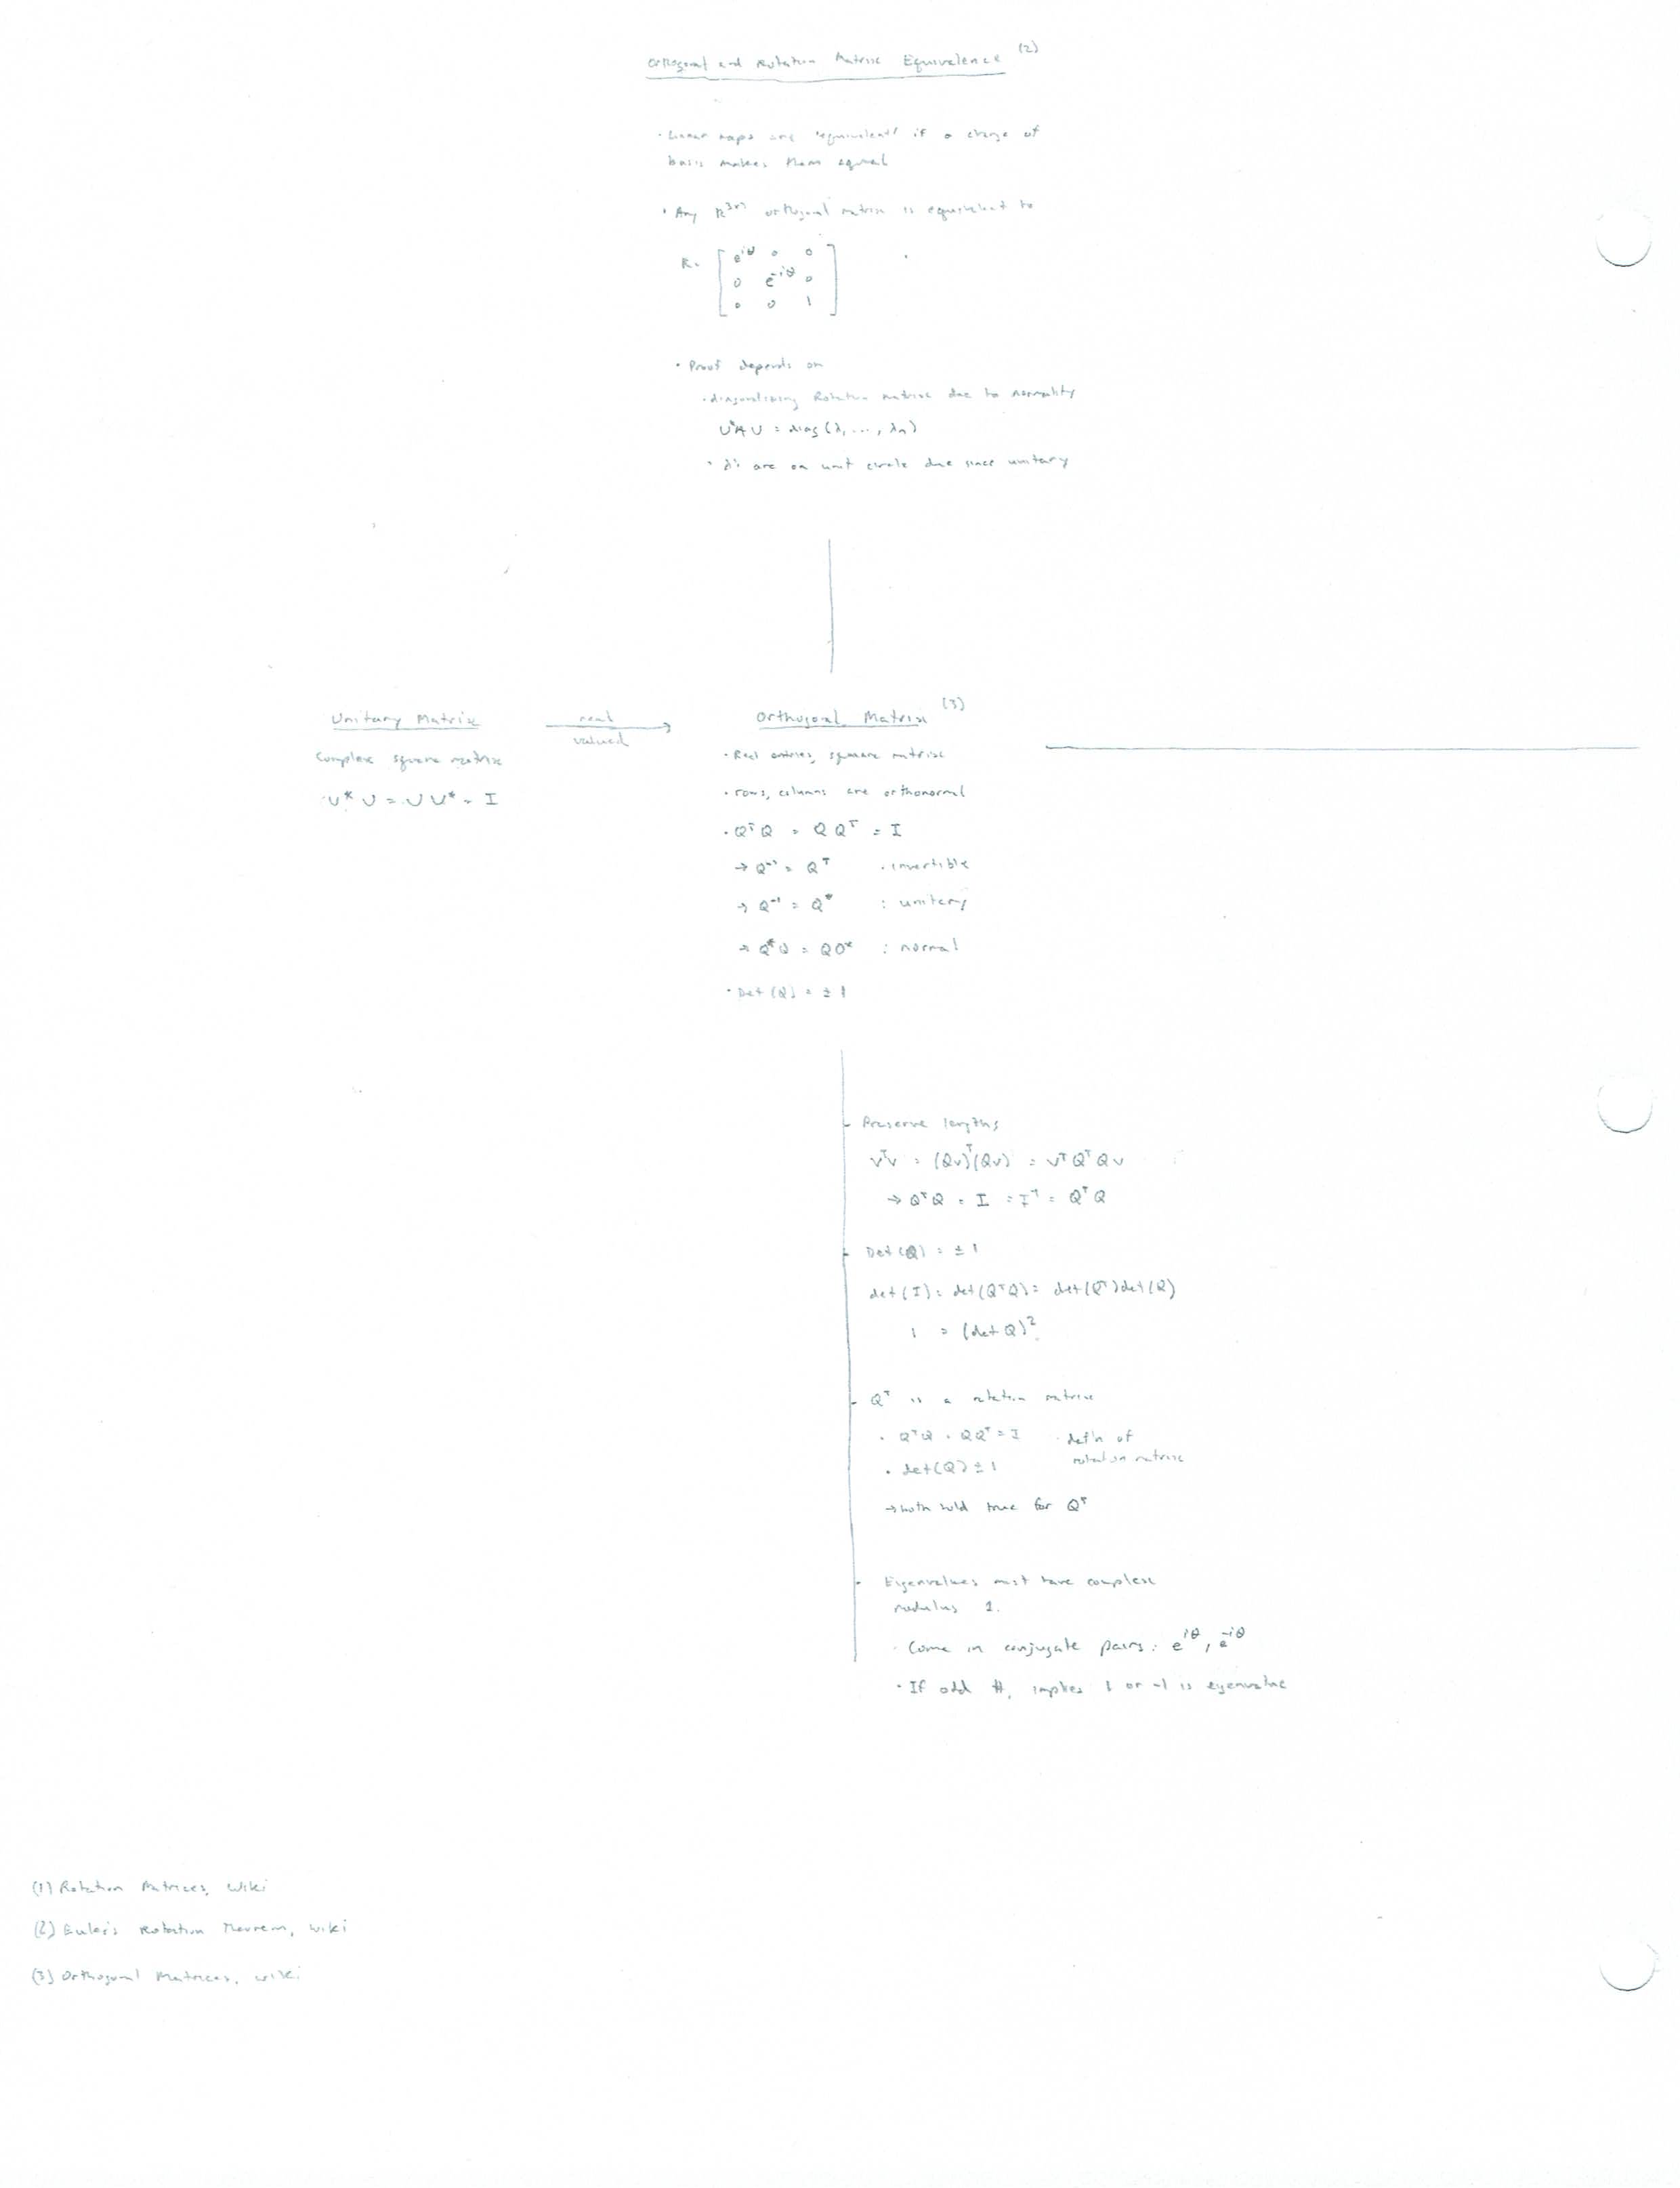 Orthogonal and Rotation Matrix Equivalence (2)
· Linear maps are 'equivalent' if a change of
basis makes them equal
· Any R³ˣ³ orthogonal matrix is equivalent to
R = [ e^iθ 0 0
0 e^-iθ 0
0 0 1 ]
· Proof depends on
· diagonalising Rotation matrix due to normality
U*AU = diag(λ, ..., λn)
· λi are on unit circle due since unitary
Unitary Matrix
Complex square matrix
U*U = UU* = I
real
valued
Orthogonal Matrix (3)
· Real entries, square matrix
· rows, columns are orthonormal
· QᵀQ = QQᵀ = I
→ Q⁻¹ = Qᵀ : invertible
→ Q⁻¹ = Q* : unitary
→ Q*Q = QQ* : normal
· Det(Q) = ± 1
- Preserve lengths
vᵀv = (Qv)ᵀ(Qv) = vᵀQᵀQv
→ QᵀQ = I = Iᵀ = QᵀQ
- Det(Q) = ± 1
det(I) = det(QᵀQ) = det(Qᵀ)det(Q)
1 = (det Q)²
- Qᵀ is a rotation matrix
· QᵀQ = QQᵀ = I · defn of
· det(Q) ± 1 rotation matrix
→ both hold true for Qᵀ
- Eigenvalues must have complex
modulus 1.
· Come in conjugate pairs: e^iθ, e^-iθ
· If odd #, implies 1 or -1 is eigenvalue
(1) Rotation Matrices, Wiki
(2) Euler's Rotation Theorem, wiki
(3) Orthogonal Matrices, wiki